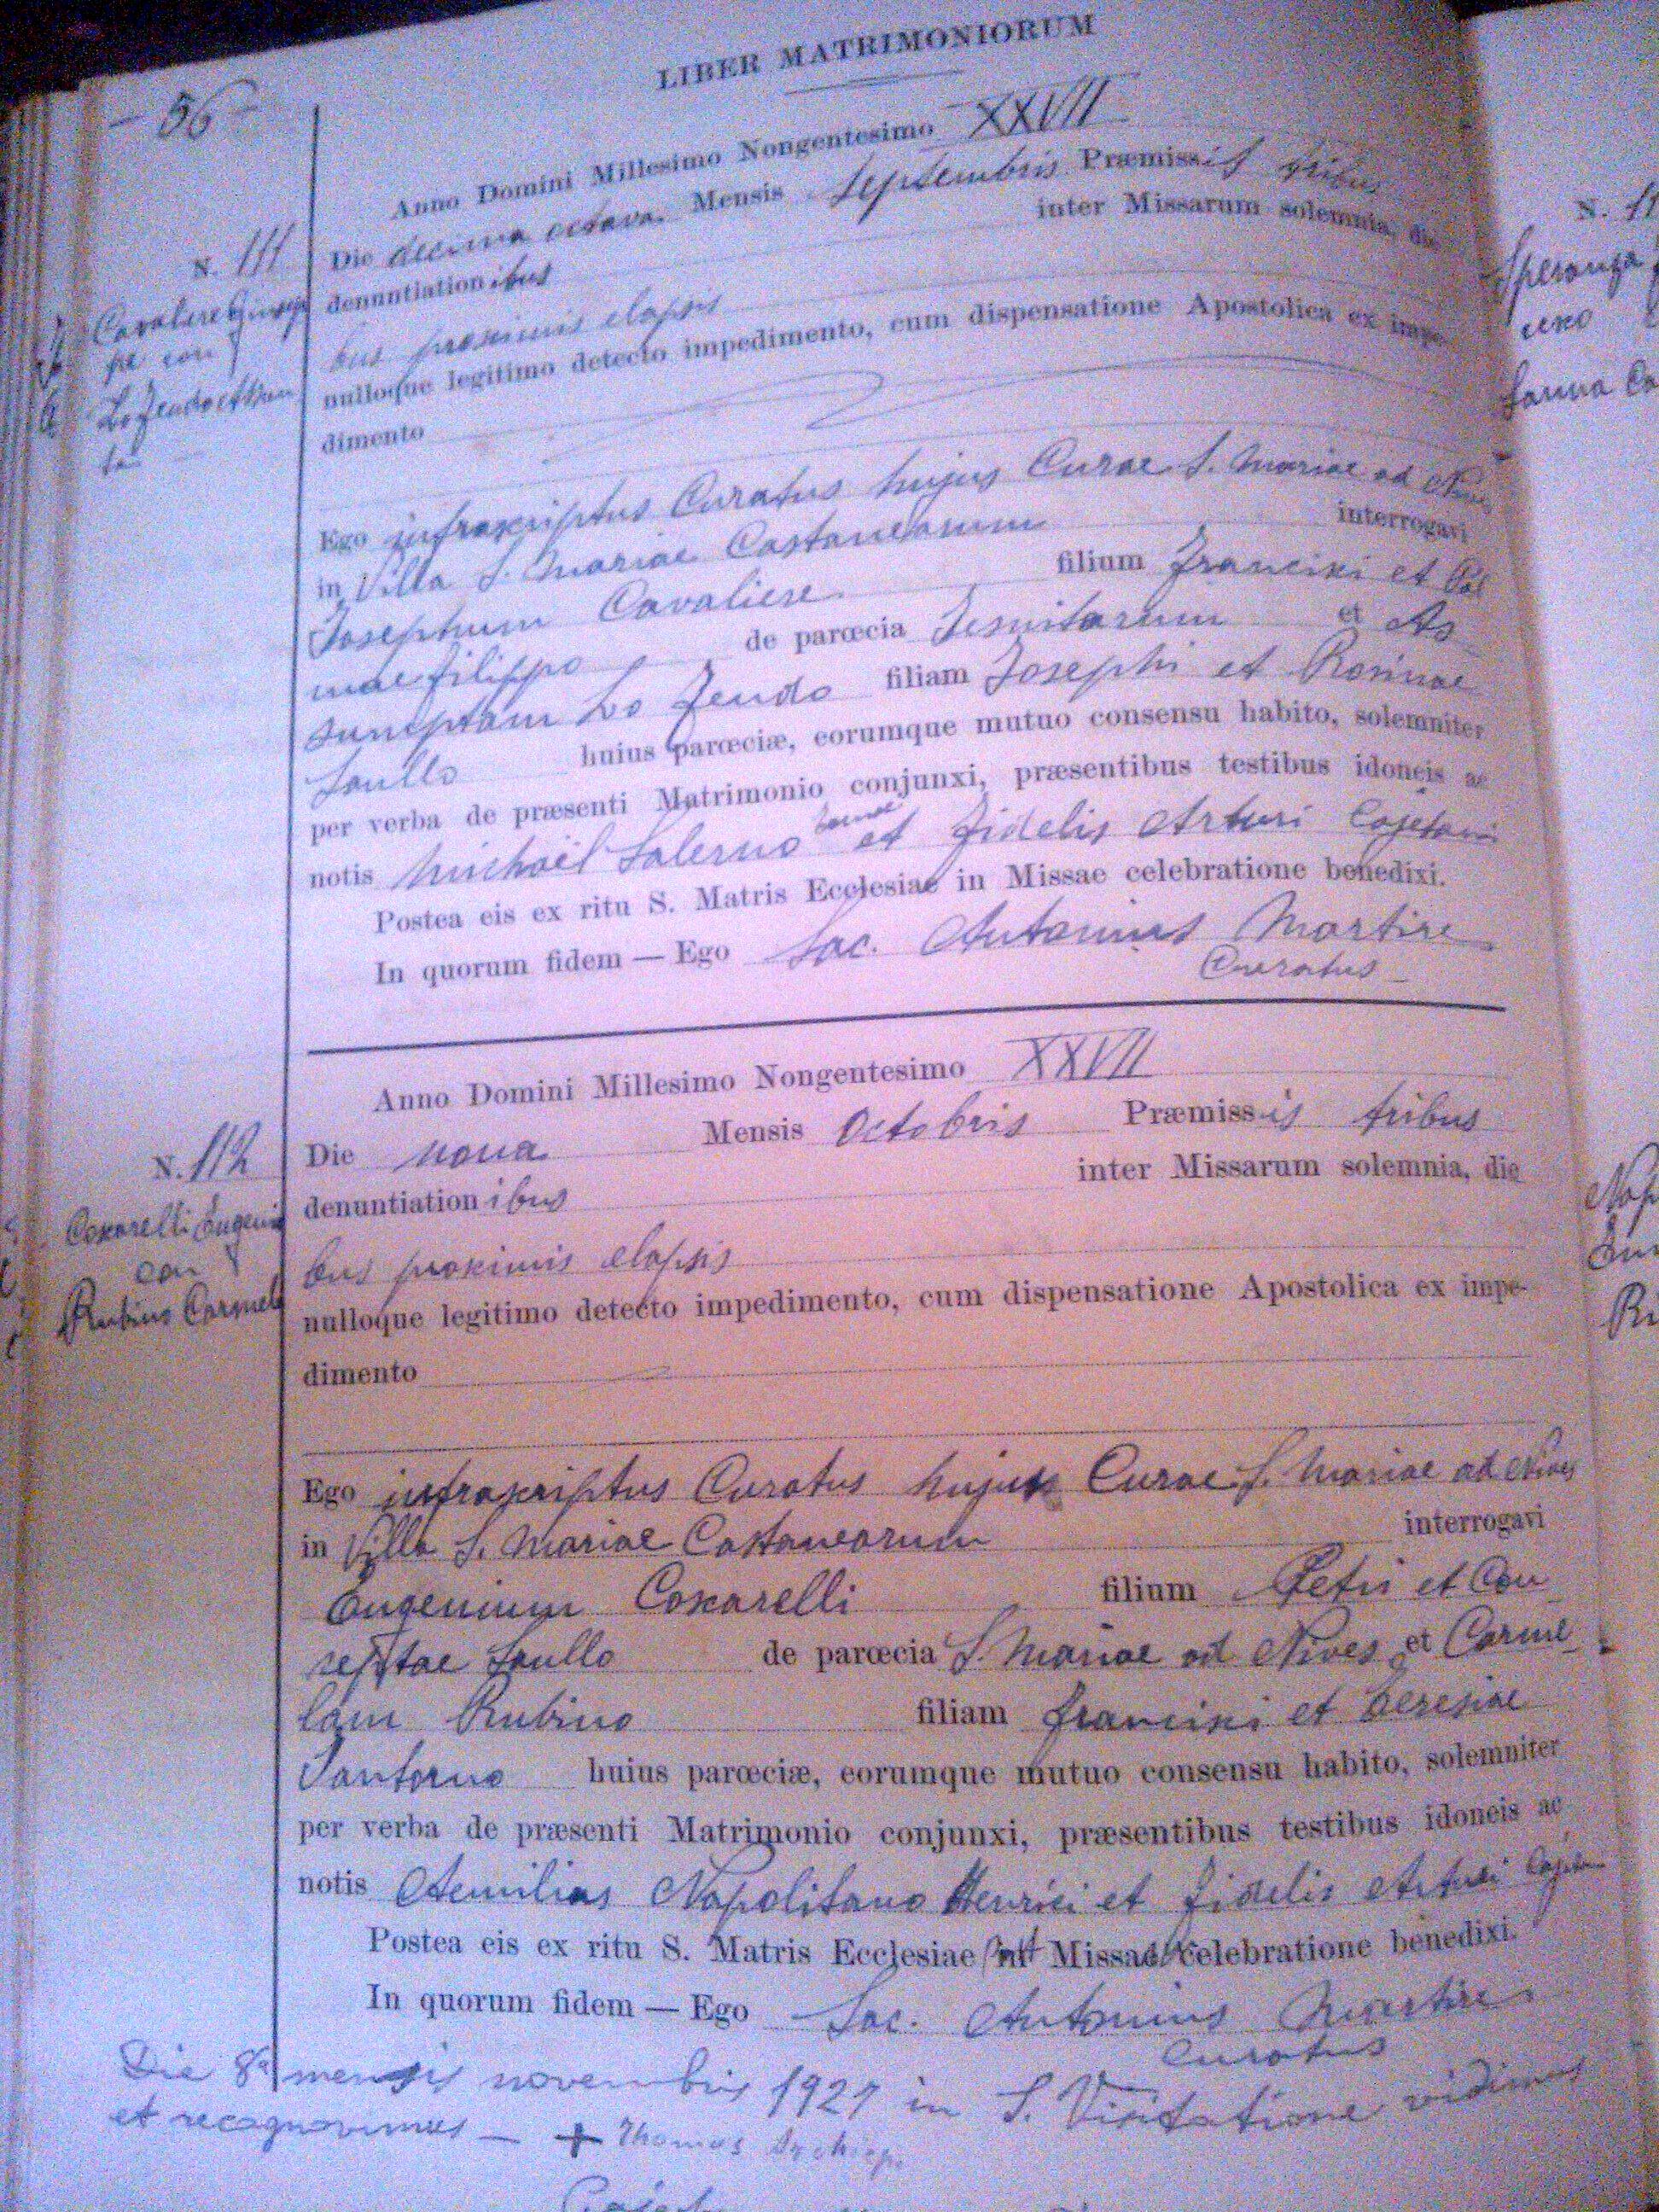 LIBER MATRIMONIORUM
- 56 -
Anno Domini Millesimo Nongentesimo XXVII
N. 111
Cavaliere Giusep
pe con
Lo Feudo Assun
ta
Die decima octava Mensis Septembris Præmissis tribus
denuntiationibus inter Missarum solemnia, die
bus proximis elapsis
nulloque legitimo detecto impedimento, cum dispensatione Apostolica ex impe-
dimento
Ego infrascriptus Curatus hujus Curae S. Mariae ad Nives
in Villa S. Mariae Castanearum interrogavi
Josephum Cavaliere filium Francisci et
mae Filippo de parœcia Jesuitarum et As
sumptam Lo Feudo filiam Josephi et Rosinae
Saullo huius parœciæ, eorumque mutuo consensu habito, solemniter
per verba de præsenti Matrimonio conjunxi, præsentibus testibus idoneis ac
notis Michaël Salerno et Fidelis Arturi Cajetani
Postea eis ex ritu S. Matris Ecclesiae in Missae celebratione benedixi.
In quorum fidem — Ego Sac. Antonius Martire
Curatus
Anno Domini Millesimo Nongentesimo XXVII
N. 112
Coscarelli Eugenio
con
Rubino Carmela
Die nona Mensis Octobris Præmissis tribus
denuntiationibus inter Missarum solemnia, die
bus proximis elapsis
nulloque legitimo detecto impedimento, cum dispensatione Apostolica ex impe-
dimento
Ego infrascriptus Curatus hujus Curae S. Mariae ad Nives
in Villa S. Mariae Castanearum interrogavi
Eugenium Coscarelli filium Petri et Con
ceptae Saullo de parœcia S. Mariae ad Nives et Carme
lam Rubino filiam Francisci et Teresiae
Santoro huius parœciæ, eorumque mutuo consensu habito, solemniter
per verba de præsenti Matrimonio conjunxi, præsentibus testibus idoneis ac
notis Aemilias Napolitano Henrici et Fidelis Arturi
Postea eis ex ritu S. Matris Ecclesiae Missae celebratione benedixi.
In quorum fidem — Ego Sac. Antonius Martire
Curatus
Die 8ª mensis novembris 1927 in S. Visitatione vidimus
et recognovimus — + Thomas Archiep.
N. 11
Speranza
Sanna Ca